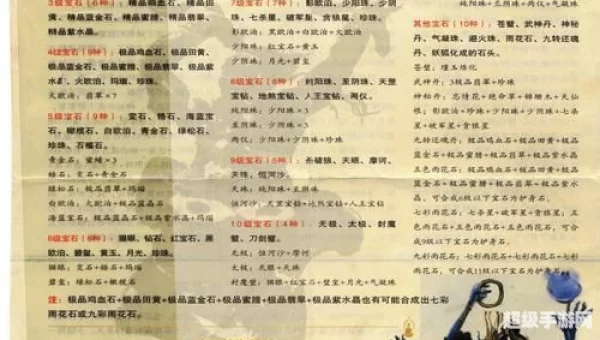 3级宝石（6种）：精品鸡血石、精品田黄、
精品蓝金石、精品蜜腊、精品翡翠、
精品紫水晶。
4级宝石（9种）：极品鸡血石、极品田黄、
极品蓝金石、极品蜜腊、极品翡翠、极品
紫水晶、火欧泊、玛瑙、珍珠。
火欧泊：翡翠×7
5级宝石（9种）：变石、锆石、海蓝宝
石、橄榄石、白欧泊、青金石、绿松石、
珍珠、石榴石。
青金石：蜜蜡×3
锆石：变石+青金石
绿松石：极品翡翠+玛瑙
白欧泊：火欧泊+极品蓝晶石
海蓝宝石：极品蓝晶石+玛瑙
6级宝石（8种）：猫眼、钻石、红宝石、黑
欧泊、碧玺、黄玉、月光、珍珠。
猫眼：变石+白欧泊+玛瑙
碧玺：绿松石+橄榄石
7级宝石（7种）：影欧泊、少阳珠、少阴
珠、七杀星、破军星、贪狼星、珍珠。
影欧泊：黑欧泊+白欧泊+火欧泊
少阳珠：红宝石+黄玉
少阴珠：月光+碧玺
8级宝石（6种）：纯阳珠、至阴珠、天罡
宝钻、地煞宝钻、人王宝钻、两仪。
纯阳珠：少阳珠×3
至阴珠：少阴珠×3
两仪：少阴珠+少阳珠+珍珠
9级宝石（5种）：赤破狼、天眼、摩诃、
天珠、恒河沙。
天珠：纯阳珠+至阴珠
恒河沙：天罡宝钻+地煞宝钻+人王宝钻
10级宝石（4种）：无极、太极、封魔
璧、刀剑璧。
无极：恒河沙+摩诃
太极：天眼+天珠
封魔璧：猫眼+红宝石+碧玺+月光+气凝珠
纯阳珠+至阴珠+两仪+气凝珠
其他宝石（10种）：苍璧、武神丹、神秘
丹、气凝珠、避火珠、雨花石、九转还魂
丹、妖狐化成的石头。
苍璧：埋玉炼化
武神丹：3极品翡翠+珍珠
避火珠：影欧泊+珍珠+少阳珠+少阴珠+七杀
星+破军星+贪狼星
九转还魂丹：极品鸡血石+极品田黄+极品蓝
金石+极品蜜腊+极品翡翠+极品紫水晶
五色雨花石：极品鸡血石+极品田黄+极品蓝
金石+极品蜜腊+极品翡翠+极品紫水晶，
可合成6级以下宝石为护身石。
七彩雨花石：七杀星+破军星+贪狼星；五
色雨花石+五色雨花石+五色雨花石，可合
成9级以下宝石为护身石。
九彩雨花石：七彩雨花石+七彩雨花石+七彩
雨花石，可合成11级以下宝石为护身石。
注：极品鸡血石+极品田黄+极品蓝金石+极品蜜腊+极品翡翠+极品紫水晶也有可能合成出七彩
雨花石或九彩雨花石。
超级手游网